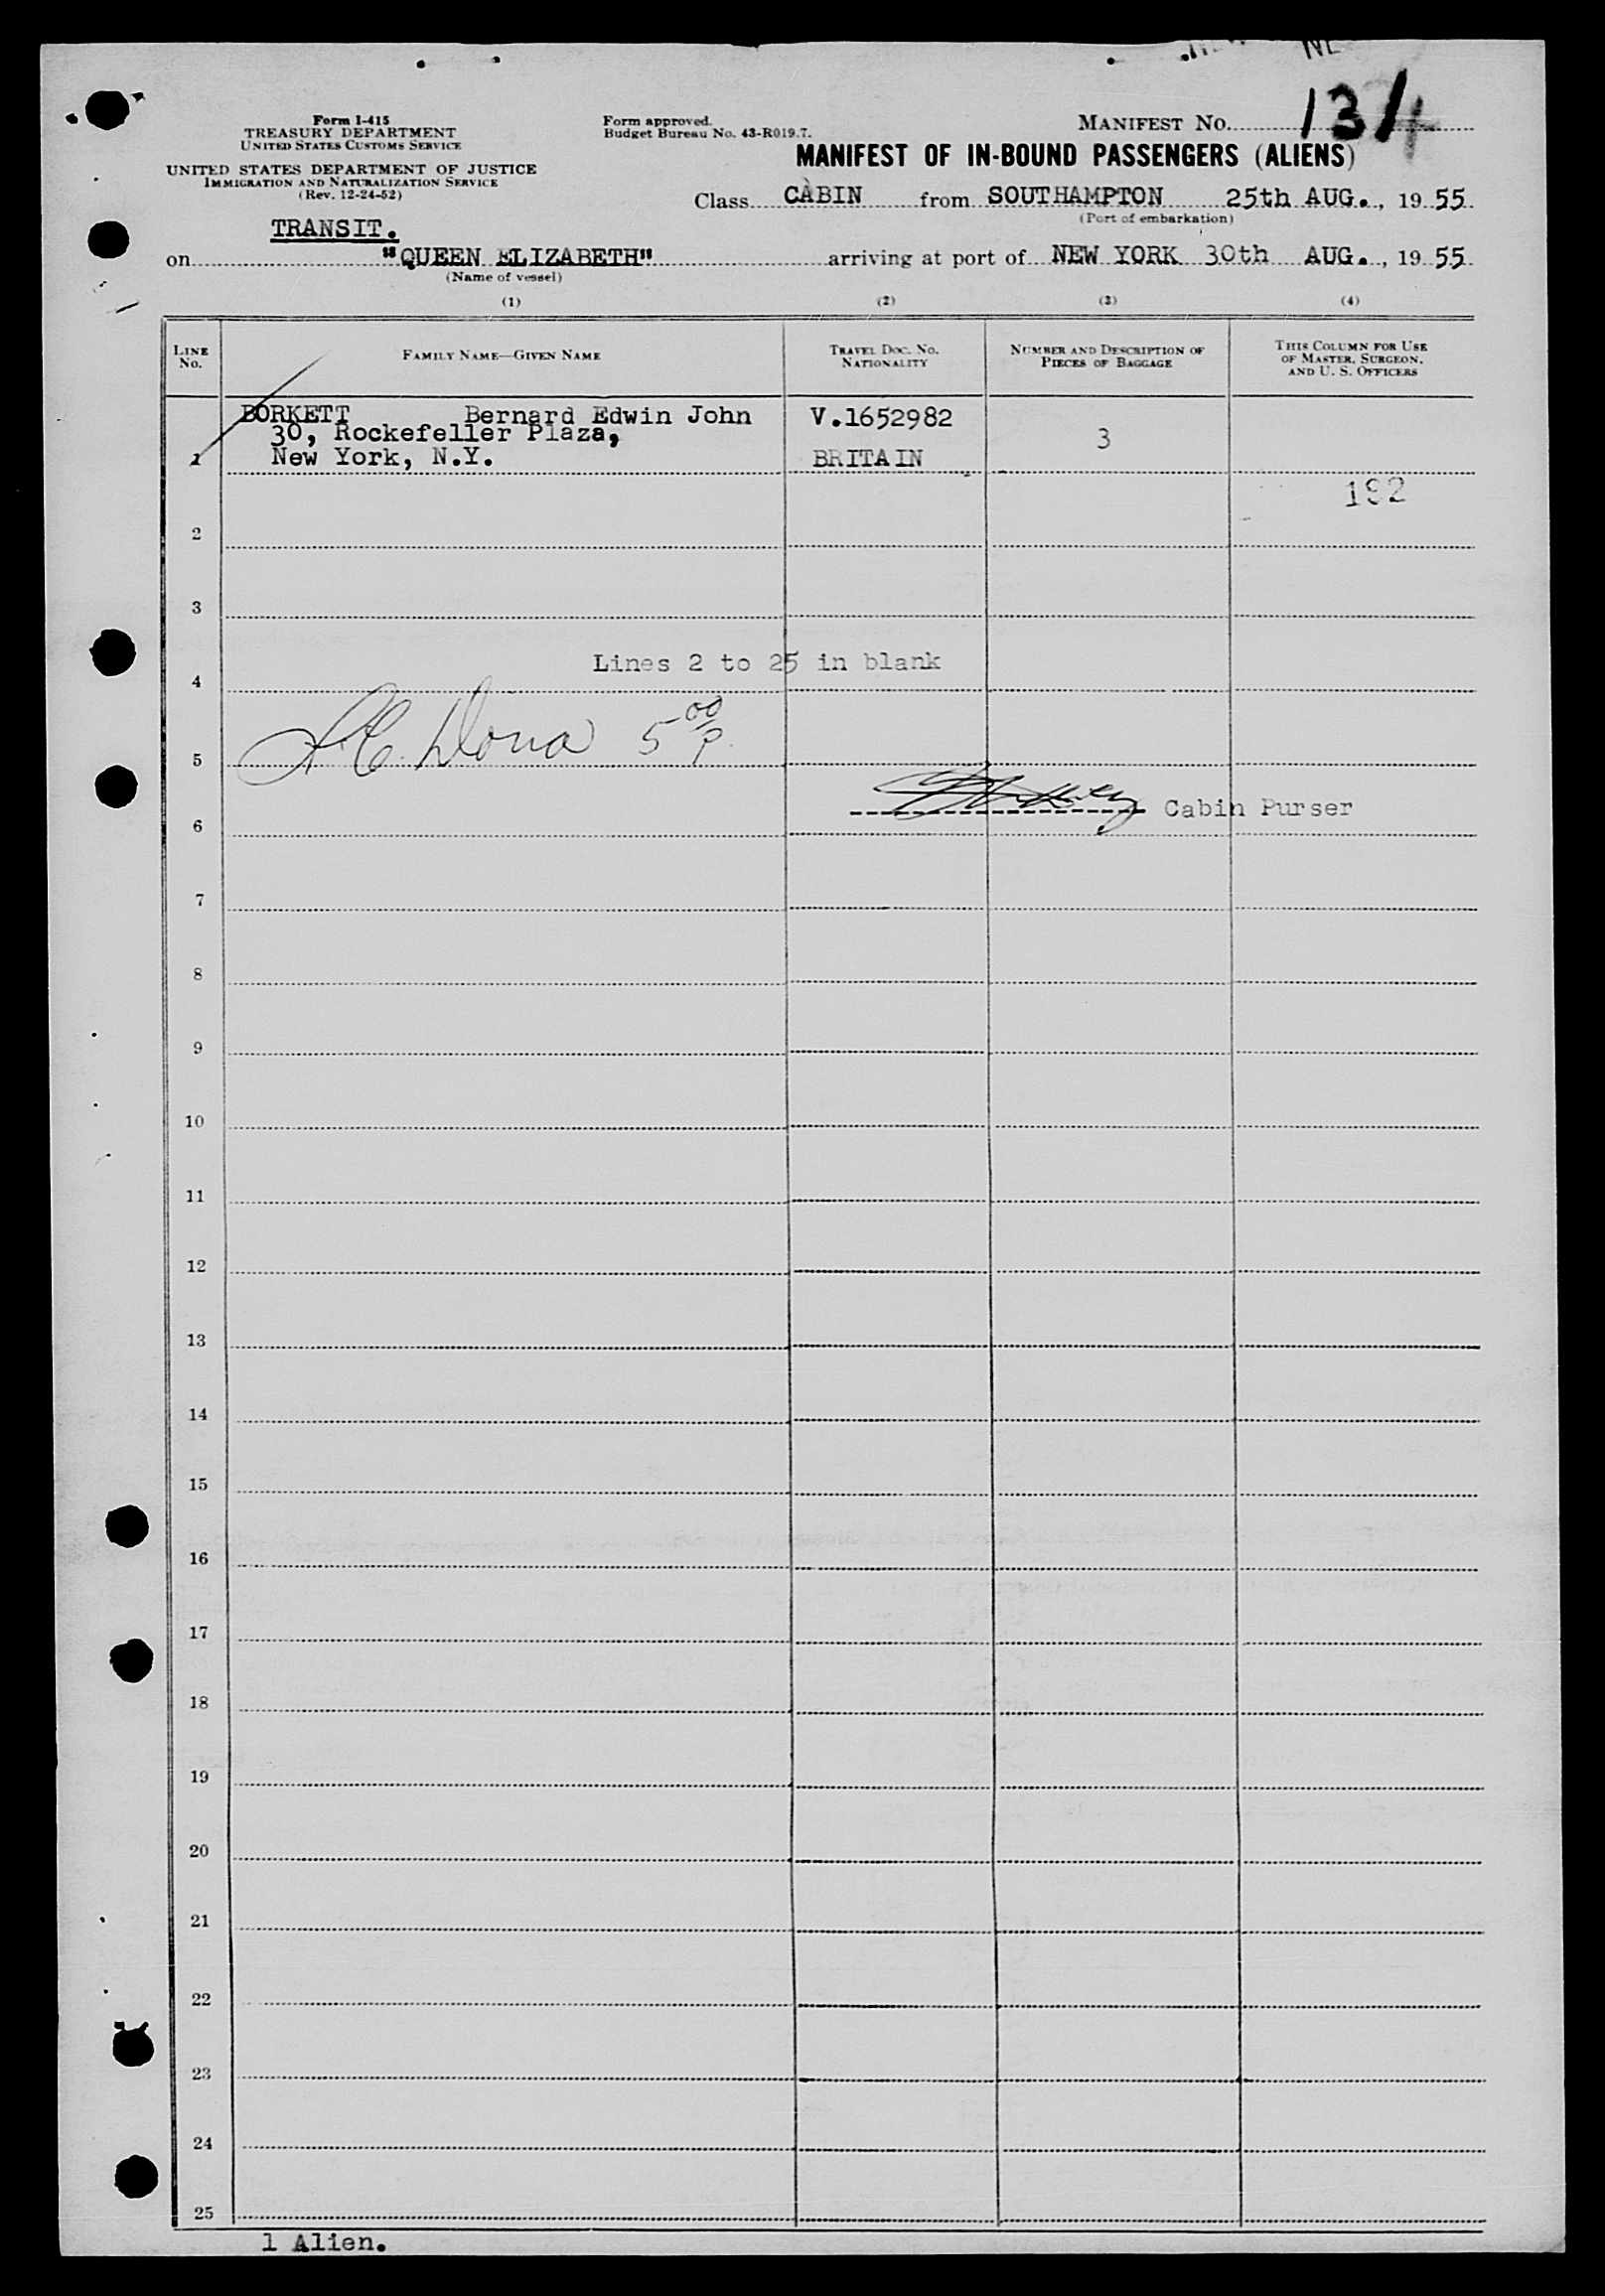 Form I-415
TREASURY DEPARTMENT
UNITED STATES CUSTOMS SERVICE
UNITED STATES DEPARTMENT OF JUSTICE
IMMIGRATION AND NATURALIZATION SERVICE
(Rev. 12-24-52)
Form approved.
Budget Bureau No. 43-R019.7.
MANIFEST No.
MANIFEST OF IN-BOUND PASSENGERS (ALIENS)
Class CABIN from SOUTHAMPTON 25th AUG., 1955
(Port of embarkation)
TRANSIT.
on "QUEEN ELIZABETH" arriving at port of NEW YORK 30th AUG., 1955
(Name of vessel)
(1) (2) (3) (4)
LINE No. FAMILY NAME—GIVEN NAME TRAVEL DOC. No. NATIONALITY NUMBER AND DESCRIPTION OF PIECES OF BAGGAGE THIS COLUMN FOR USE OF MASTER, SURGEON, AND U. S. OFFICERS
BORKETT Bernard Edwin John V.1652982
30, Rockefeller Plaza, 3
1 New York, N.Y. BRITAIN
192
2
3
Lines 2 to 25 in blank
4
5 00
5
Cabin Purser
6
7
8
9
10
11
12
13
14
15
16
17
18
19
20
21
22
23
24
25
1 Alien.